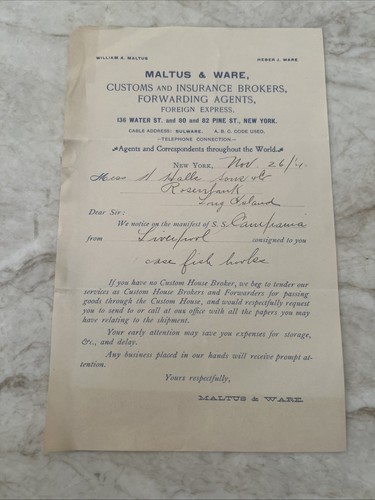 WILLIAM A. MALTUS HEBER J. WARE
MALTUS & WARE,
CUSTOMS AND INSURANCE BROKERS,
FORWARDING AGENTS,
FOREIGN EXPRESS.
136 WATER ST. and 80 and 82 PINE ST., NEW YORK.
CABLE ADDRESS: SULWARE. A. B. C. CODE USED.
—TELEPHONE CONNECTION—
Agents and Correspondents throughout the World
NEW YORK, Nov 26/
Mess Sons & Co
Rosenbank
Long Island
Dear Sir:
We notice on the manifest of S. S. Campania
from Liverpool consigned to you
case fish hooks
If you have no Custom House Broker, we beg to tender our
services as Custom House Brokers and Forwarders for passing
goods through the Custom House, and would respectfully request
you to send to or call at our office with all the papers you may
have relating to the shipment.
Your early attention may save you expenses for storage,
&c., and delay.
Any business placed in our hands will receive prompt at-
tention.
Yours respectfully,
MALTUS & WARE.